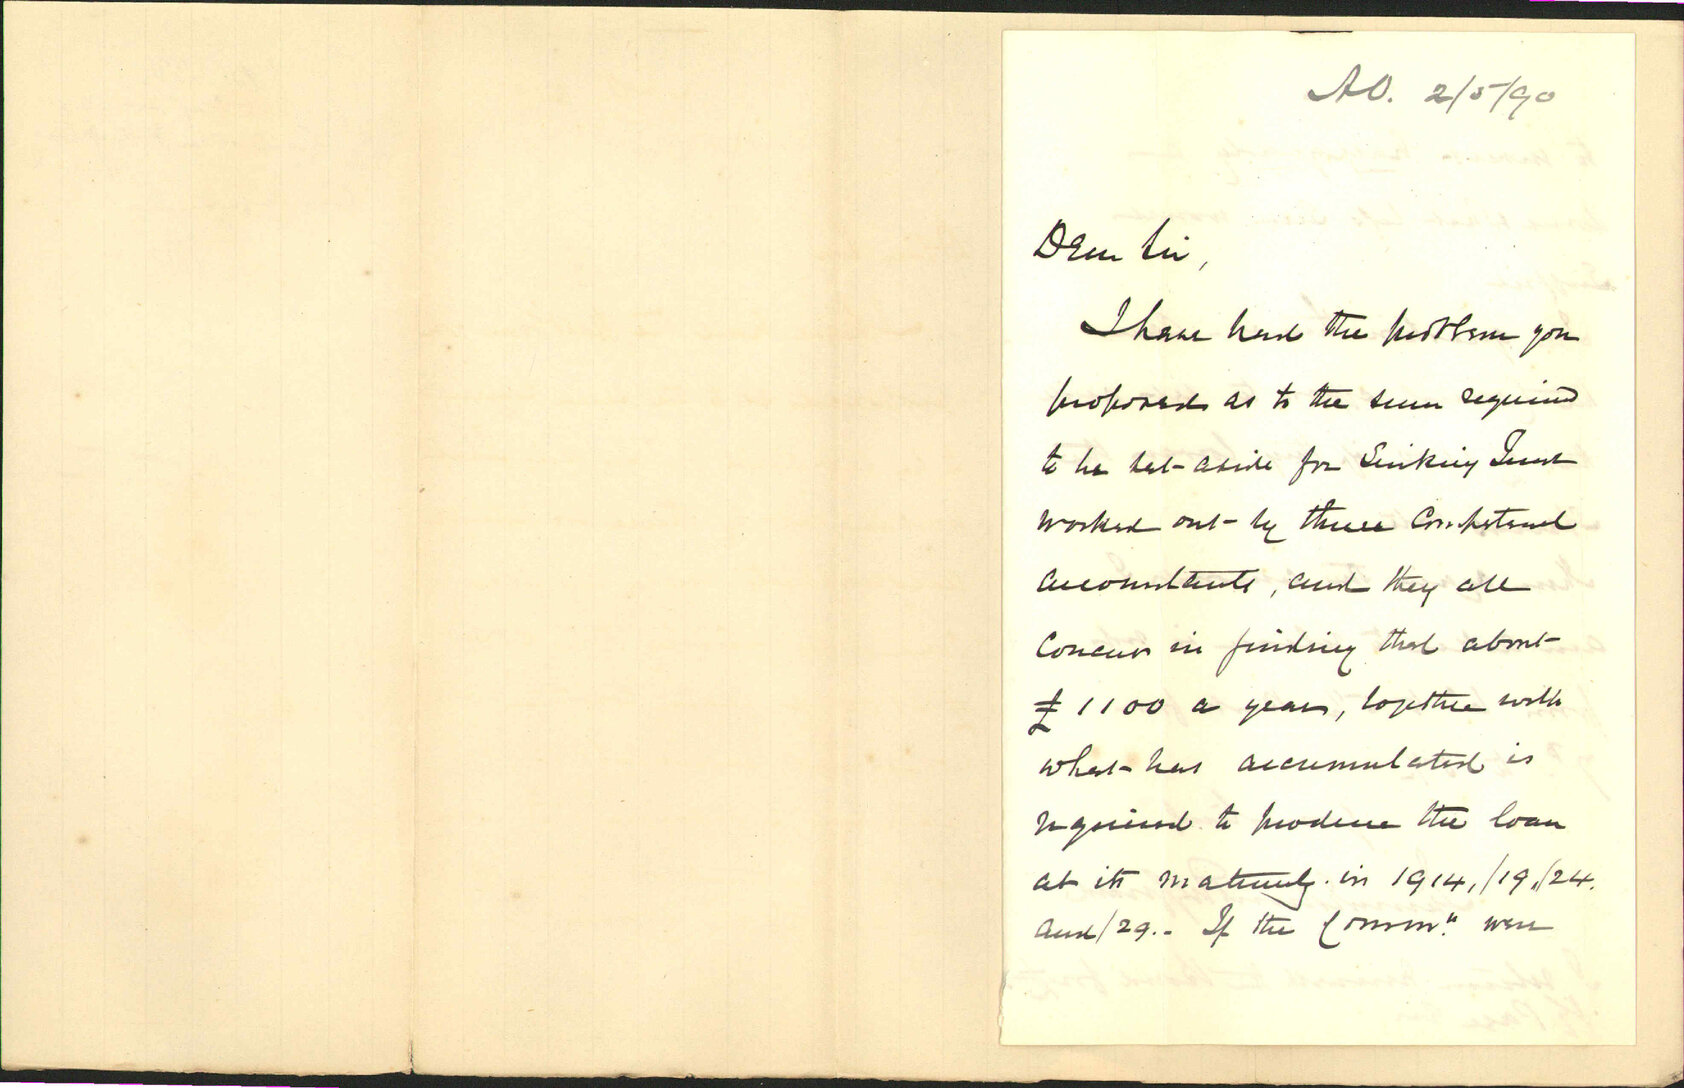 A.O. 2/5/90
Dear Sir,
I have had the problem you
proposed as to the sum required
to be set aside for Sinking Fund
worked out by three Competent
accountants, and they all
Concur in finding that about
£1100 a year, together with
what has accumulated is
required to produce the loan
at its maturity in 1914,/19,/24.
and/29. - If the Commrs. were